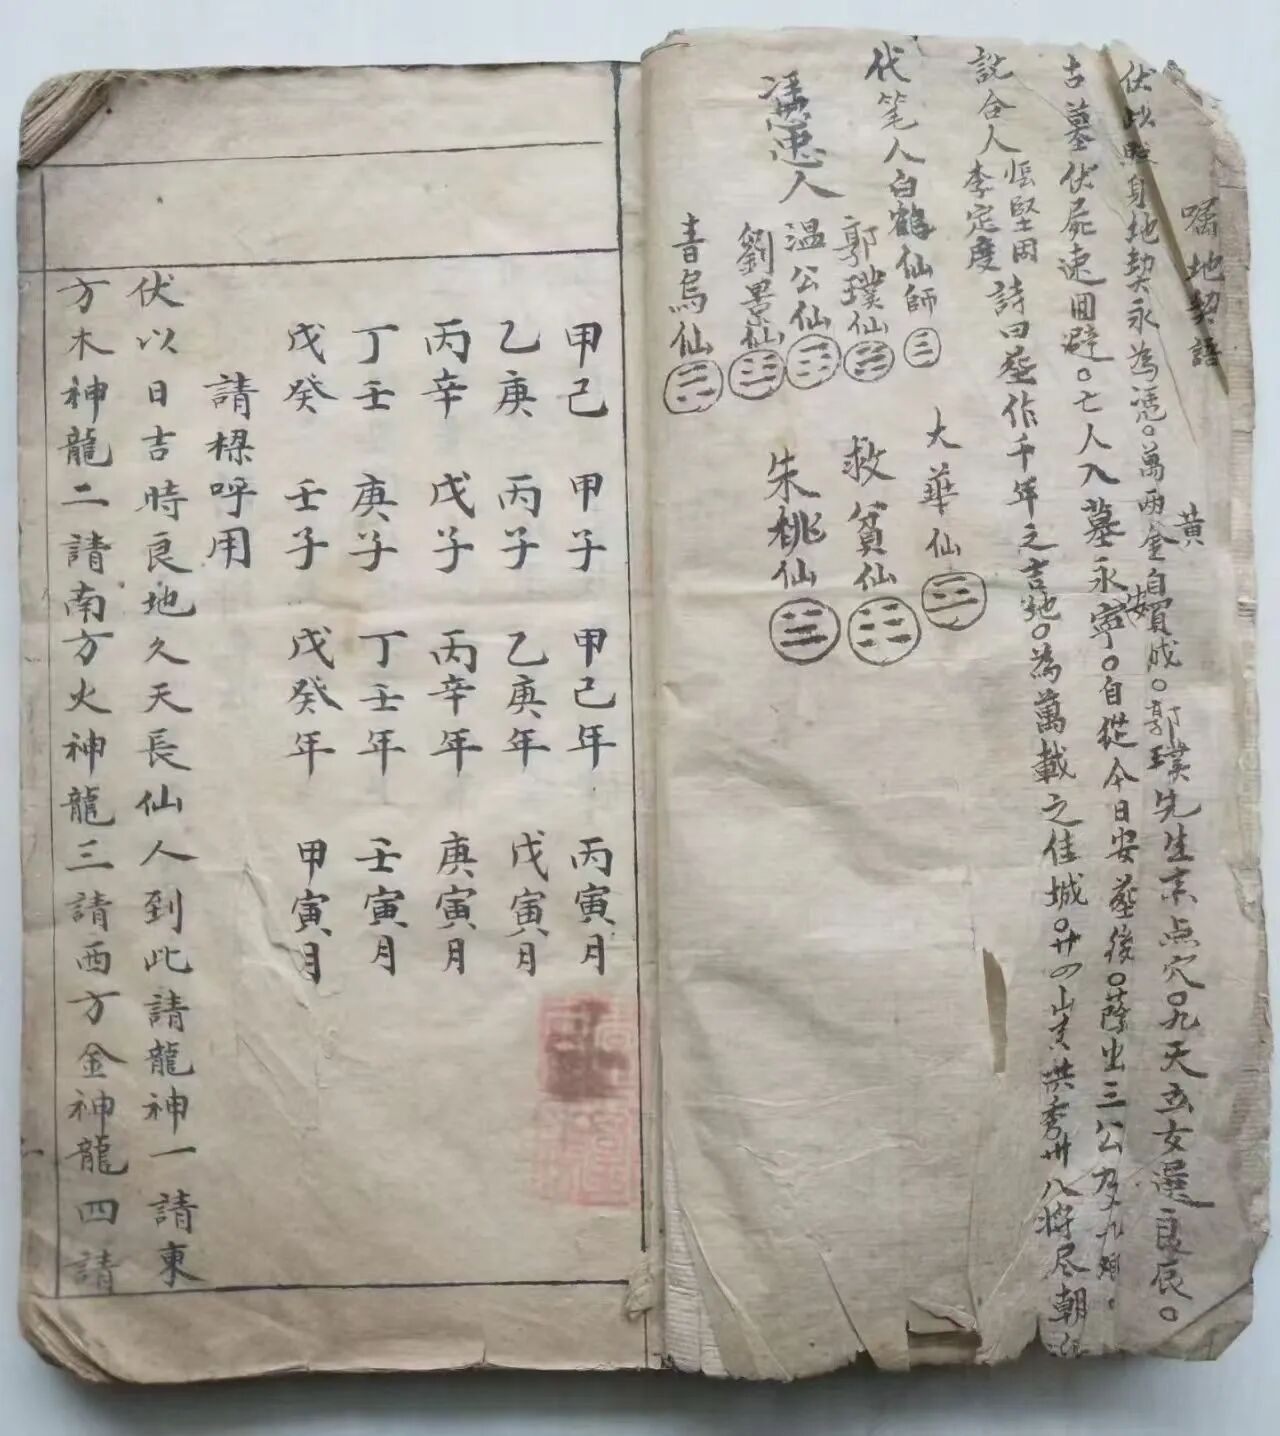 嘱地契語
伏以照身地契永為憑。萬兩黃金自買成。郭璞先生來点穴。九天玄女選良辰。
古墓伏屍速囬避。亡人入墓永安寧。自從今日安葬後。蔭出三公及九卿。
說合人 張堅固 李定度 詩曰葬作千年之吉地。為萬載之佳城。廿四山 拱秀 八將尽朝
代笔人白鶴仙師
大華仙
憑忠人
郭璞仙
救貧仙
温公仙
劉景仙
朱桃仙
青烏仙
甲己 甲子 甲己年 丙寅月
乙庚 丙子 乙庚年 戊寅月
丙辛 戊子 丙辛年 庚寅月
丁壬 庚子 丁壬年 壬寅月
戊癸 壬子 戊癸年 甲寅月
請樑呼用
伏以日吉時良地久天長仙人到此請龍神一請東
方木神龍二請南方火神龍三請西方金神龍四請